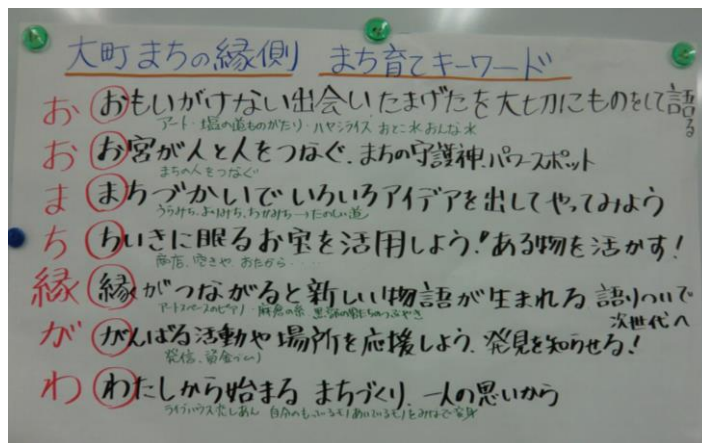 大町まちの縁側 まち育てキーワード
お おもいがけない出会いたまげたを大切にものをして語る
アート・塩の道ものがたり・ハヤシライス おとこ水おんな水
お お宮が人と人をつなぐ、まちの守護神、パワースポット
まちの人をつなぐ
ま まちづかいでいろいろアイデアを出してやってみよう
うらみち、よりみち、わがみち→たのしい道
ち ちいきに眠るお宝を活用しよう!ある物を活かす!
商店、空きや、おたから・・・・
縁 縁がつながると新しい物語が生まれる 語りついで次世代へ
アートスペースのピアノ・麻倉の糸・黒部の
が がんばる活動や場所を応援しよう、発見を知らせる!
発信、資金
わ わたしから始まるまちづくり、一人の思いから
ライブハウス 自分の